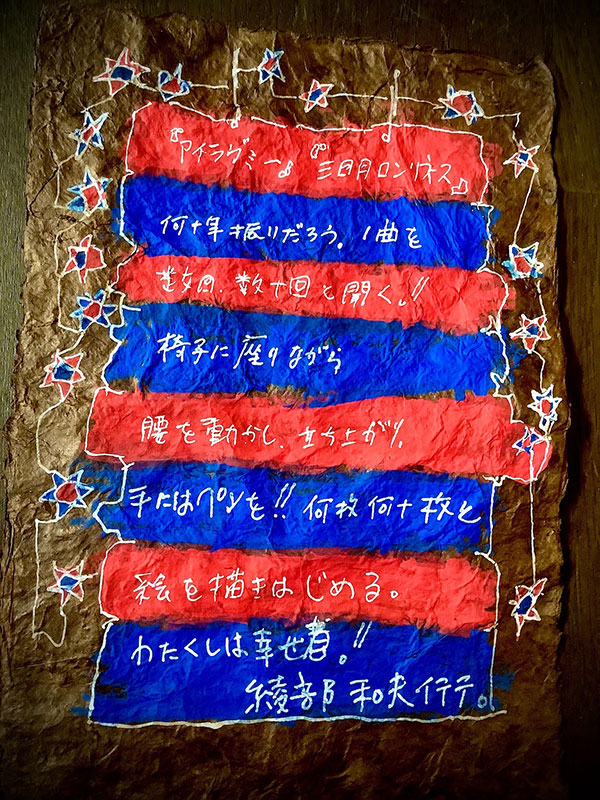 『アイラヴミー』『三日月ロンリネス』
何十年振りだろう。1曲を
数回、数十回と聞く。!!
椅子に座りながら
腰を動かし、立ち上がり、
手にはペンを!! 何枚何十枚と
絵を描きはじめる。
わたくしは幸せ者。!!
綾部和夫